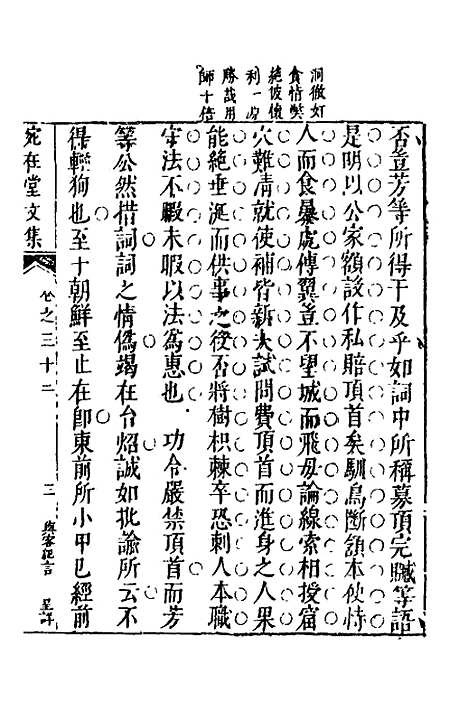 洞徹奸
貪情弊
絕彼後
利一
勝哉用
師十倍
否豈芳等所得干及乎如詞中所稱募頂完贓等語
是明以公家額設作私賠頂首矣馴鳥斷頷本使恃
人而食暴虎傅翼豈不望城而飛毋論線索相授窟
穴難清就使補皆新大試問費頂首而進身之人果
能絕垂涎而供事之後否將樹枳棘卒恐刺人本職
守法不暇未暇以法爲惠也 功令嚴禁頂首而芳
等公然措詞詞之情僞竭在台炤誠如批諭所云不
得轡狗也至十朝鮮至止在卽東前所小甲已經前
宛在堂文集
卷之三十二
三
與客記言 呈詳